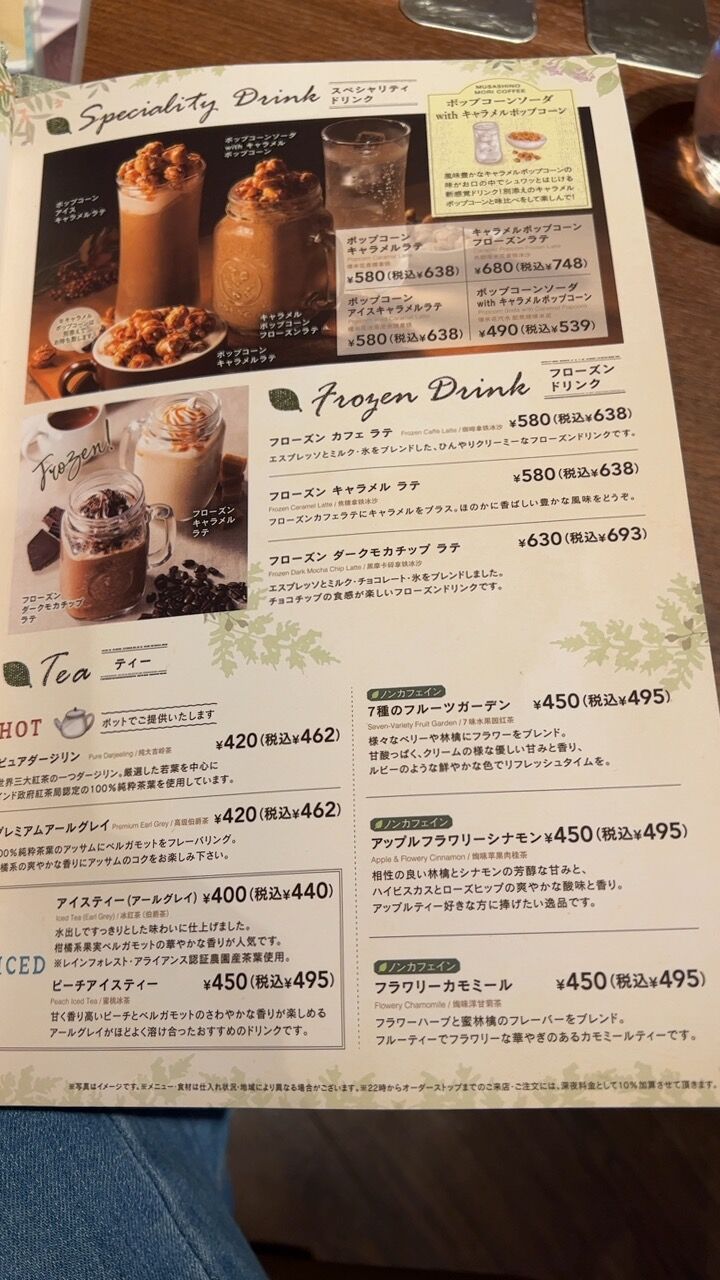 Speciality Drink
スペシャリティ
ドリンク
MUSASHINO
MORI COFFEE
ポップコーンソーダ
with キャラメルポップコーン
風味豊かなキャラメルポップコーンの
味がお口の中でシュワッとはじける
新感覚ドリンク!別添えのキャラメル
ポップコーンと味比べをして楽しんで!
ポップコーンソーダ
with キャラメル
ポップコーン
ポップコーン
アイス
キャラメルラテ
キャラメル
ポップコーン
フローズンラテ
ポップコーン
キャラメルラテ
※キャラメル
ポップコーンは
別添えで
お持ち致します。
ポップコーン
キャラメルラテ
Popcorn Caramel Latte
¥580(税込¥638)
キャラメルポップコーン
フローズンラテ
¥680(税込¥748)
ポップコーン
アイスキャラメルラテ
¥580(税込¥638)
ポップコーンソーダ
with キャラメルポップコーン
Popcorn Soda with Caramel Popcorn
¥490(税込¥539)
Frozen Drink
フローズン
ドリンク
Frozen!
フローズン
キャラメル
ラテ
フローズン
ダークモカチップ
ラテ
フローズン カフェ ラテ Frozen Caffè Latte / 咖啡拿铁冰沙 ¥580(税込¥638)
エスプレッソとミルク・氷をブレンドした、ひんやりクリーミーなフローズンドリンクです。
フローズン キャラメル ラテ ¥580(税込¥638)
Frozen Caramel Latte / 焦糖拿铁冰沙
フローズンカフェラテにキャラメルをプラス。ほのかに香ばしい豊かな風味をどうぞ。
フローズン ダークモカチップ ラテ ¥630(税込¥693)
Frozen Dark Mocha Chip Latte / 黑摩卡碎拿铁冰沙
エスプレッソとミルク・チョコレート・氷をブレンドしました。
チョコチップの食感が楽しいフローズンドリンクです。
Tea
ティー
HOT
ポットでご提供いたします
ピュアダージリン Pure Darjeeling / 纯大吉岭茶 ¥420(税込¥462)
世界三大紅茶の一つダージリン。厳選した若葉を中心に
インド政府紅茶局認定の100%純粋茶葉を使用しています。
プレミアムアールグレイ Premium Earl Grey / 高级伯爵茶 ¥420(税込¥462)
100%純粋茶葉のアッサムにベルガモットをフレーバリング。
柑橘系の爽やかな香りにアッサムのコクをお楽しみ下さい。
ICED
アイスティー(アールグレイ) ¥400(税込¥440)
Iced Tea (Earl Grey) / 冰紅茶 (伯爵茶)
水出しですっきりとした味わいに仕上げました。
柑橘系果実ベルガモットの華やかな香りが人気です。
※レインフォレスト・アライアンス認証農園産茶葉使用。
ピーチアイスティー ¥450(税込¥495)
Peach Iced Tea / 蜜桃冰茶
甘く香り高いピーチとベルガモットのさわやかな香りが楽しめる
アールグレイがほどよく溶け合ったおすすめのドリンクです。
ノンカフェイン
7種のフルーツガーデン ¥450(税込¥495)
Seven-Variety Fruit Garden / 7味水果园紅茶
様々なベリーや林檎にフラワーをブレンド。
甘酸っぱく、クリームの様な優しい甘みと香り、
ルビーのような鮮やかな色でリフレッシュタイムを。
ノンカフェイン
アップルフラワリーシナモン ¥450(税込¥495)
Apple & Flowery Cinnamon / 绚味苹果肉桂茶
相性の良い林檎とシナモンの芳醇な甘みと、
ハイビスカスとローズヒップの爽やかな酸味と香り。
アップルティー好きな方に捧げたい逸品です。
ノンカフェイン
フラワリーカモミール ¥450(税込¥495)
Flowery Chamomile / 绚味洋甘菊茶
フラワーハーブと蜜林檎のフレーバーをブレンド。
フルーティーでフラワリーな華やぎのあるカモミールティーです。
※写真はイメージです。※メニュー・食材は仕入れ状況・地域により異なる場合がございます。※22時からオーダーストップまでのご来店・ご注文には、深夜料金として10%加算させて頂きます。